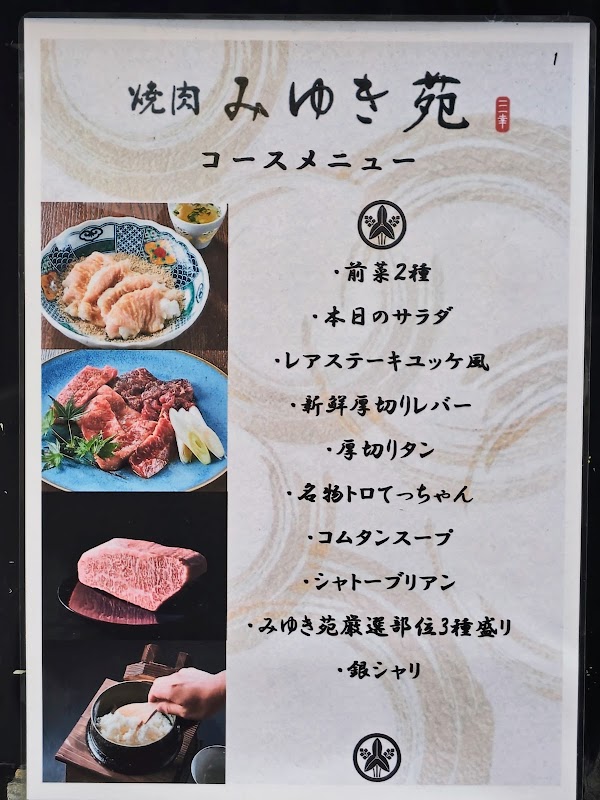 1
焼肉 みゆき苑
コースメニュー
・前菜2種
・本日のサラダ
・レアステーキユッケ風
・新鮮厚切りレバー
・厚切りタン
・名物トロてっちゃん
・コムタンスープ
・シャトーブリアン
・みゆき苑厳選部位3種盛り
・銀シャリ